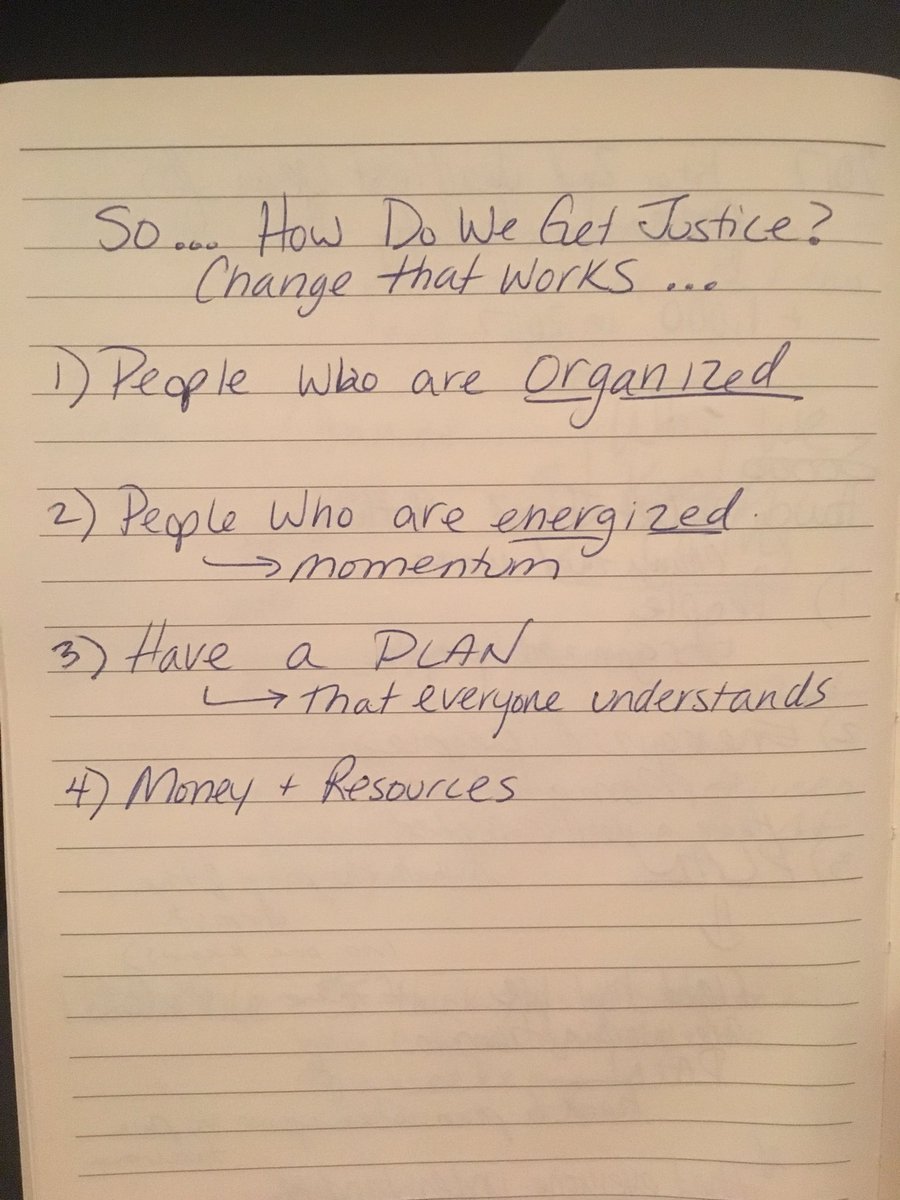 So.... How Do We Get Justice?
Change that works ...
1) People who are organized
2) People who are energized.
→ momentum
3) Have a PLAN
→ that everyone understands
4) Money + Resources